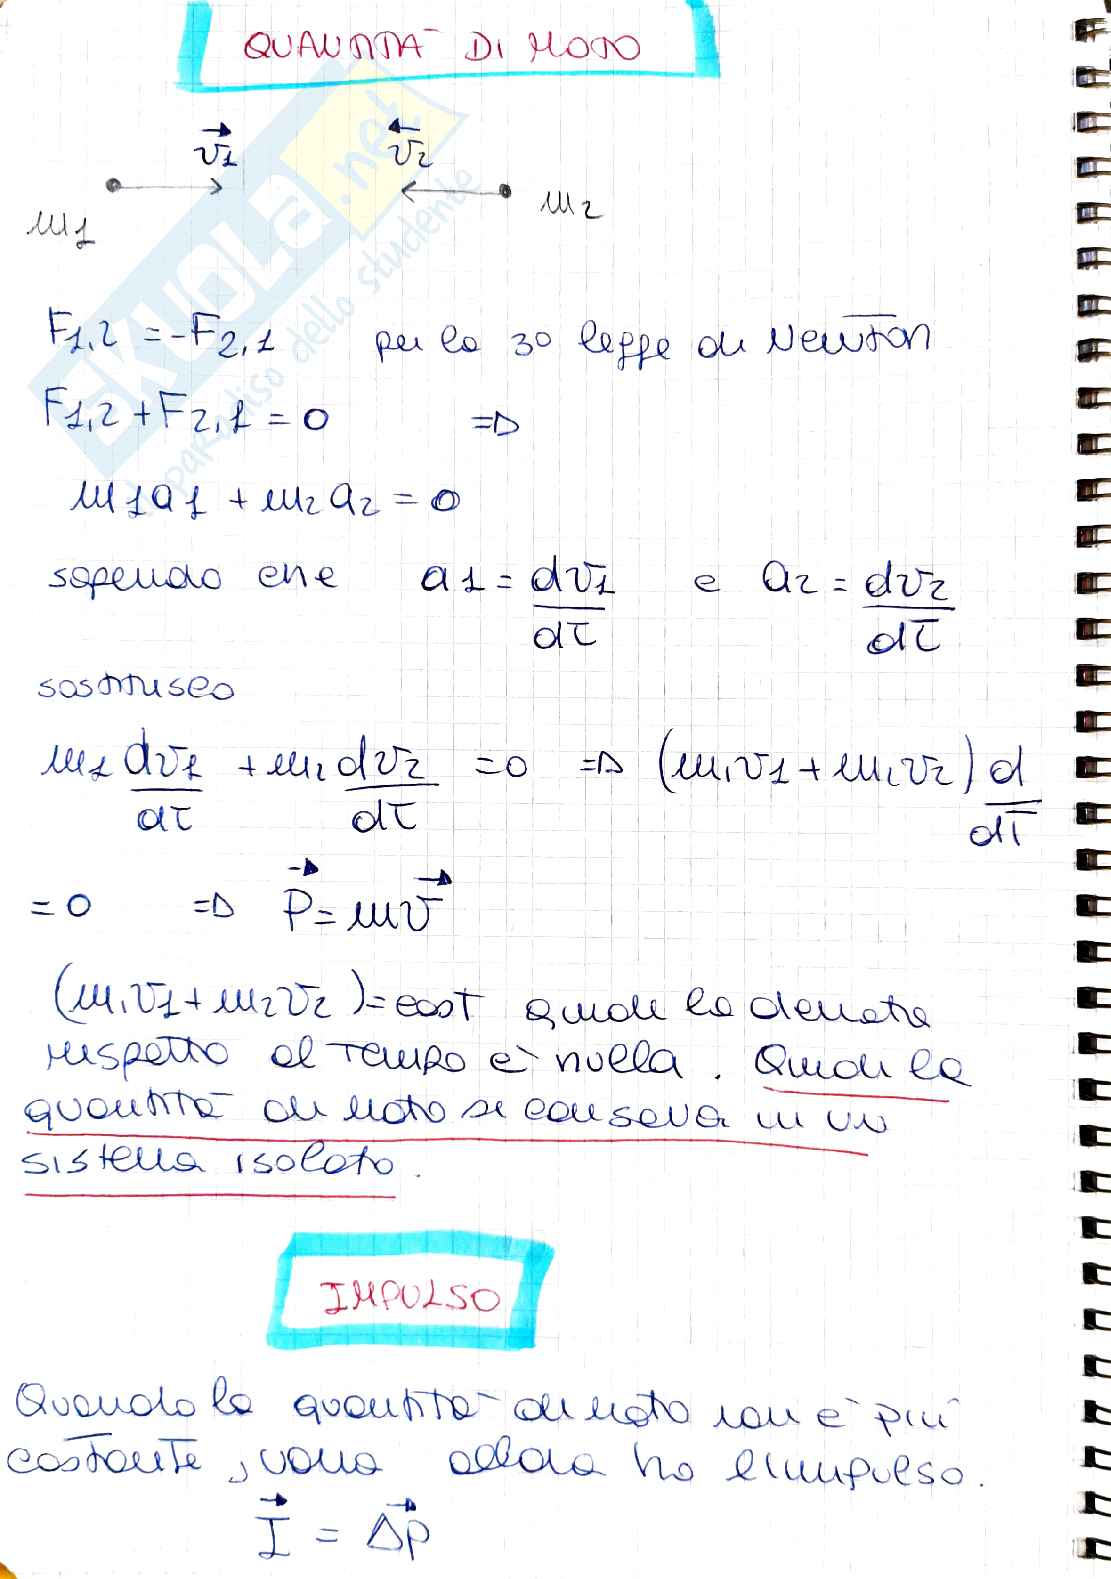 QUANTITÀ DI MOTO
v1 v2
m1 m2
F1,2 = -F2,1 per la 3° legge di Newton
F1,2 + F2,1 = 0 =>
m1a1 + m2a2 = 0
sapendo che a1 = dv1/dt e a2 = dv2/dt
sostituisco
m1 dv1/dt + m2 dv2/dt = 0 => (m1v1 + m2v2) d/dt
= 0 => P = mv
(m1v1 + m2v2) = cost quindi la derivata
rispetto al tempo è nulla. Quindi la
quantità di moto si conserva in un
sistema isolato.
IMPULSO
Quando la quantità di moto non è più
costante, varia allora ho l'impulso.
I = Δp
SKUOLA.net
il paradiso dello studente